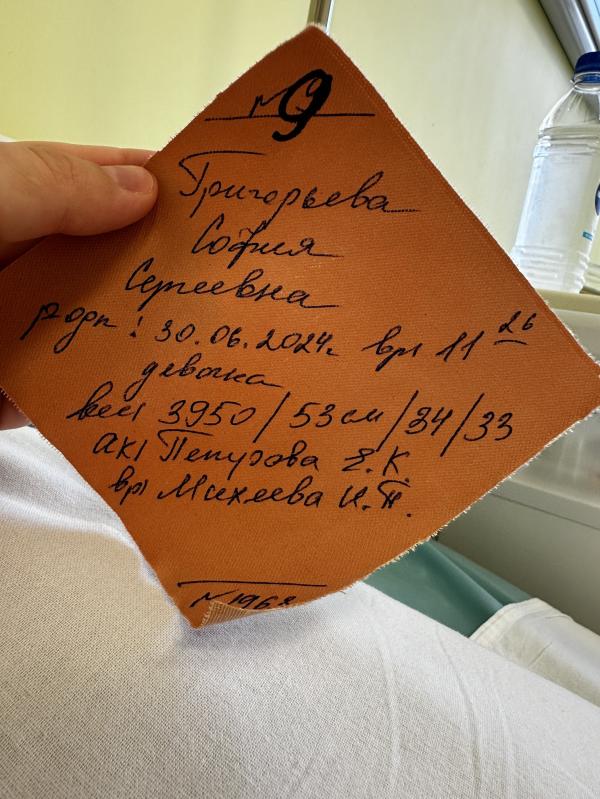 № 9
Григорьева
София
Сергеевна
родн: 30.06.2024г. вр| 11 26
девочка
вес| 3950/53см/34/33
ак| Пепурова Е.К.
вр| Михеева И.П.